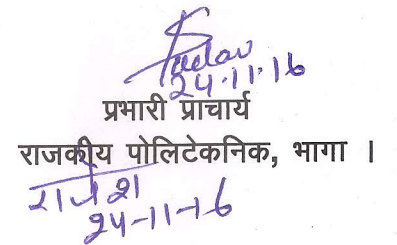 24.11.16
प्रभारी प्राचार्य
राजकीय पोलिटेकनिक, भागा ।
राजेश
24-11-16